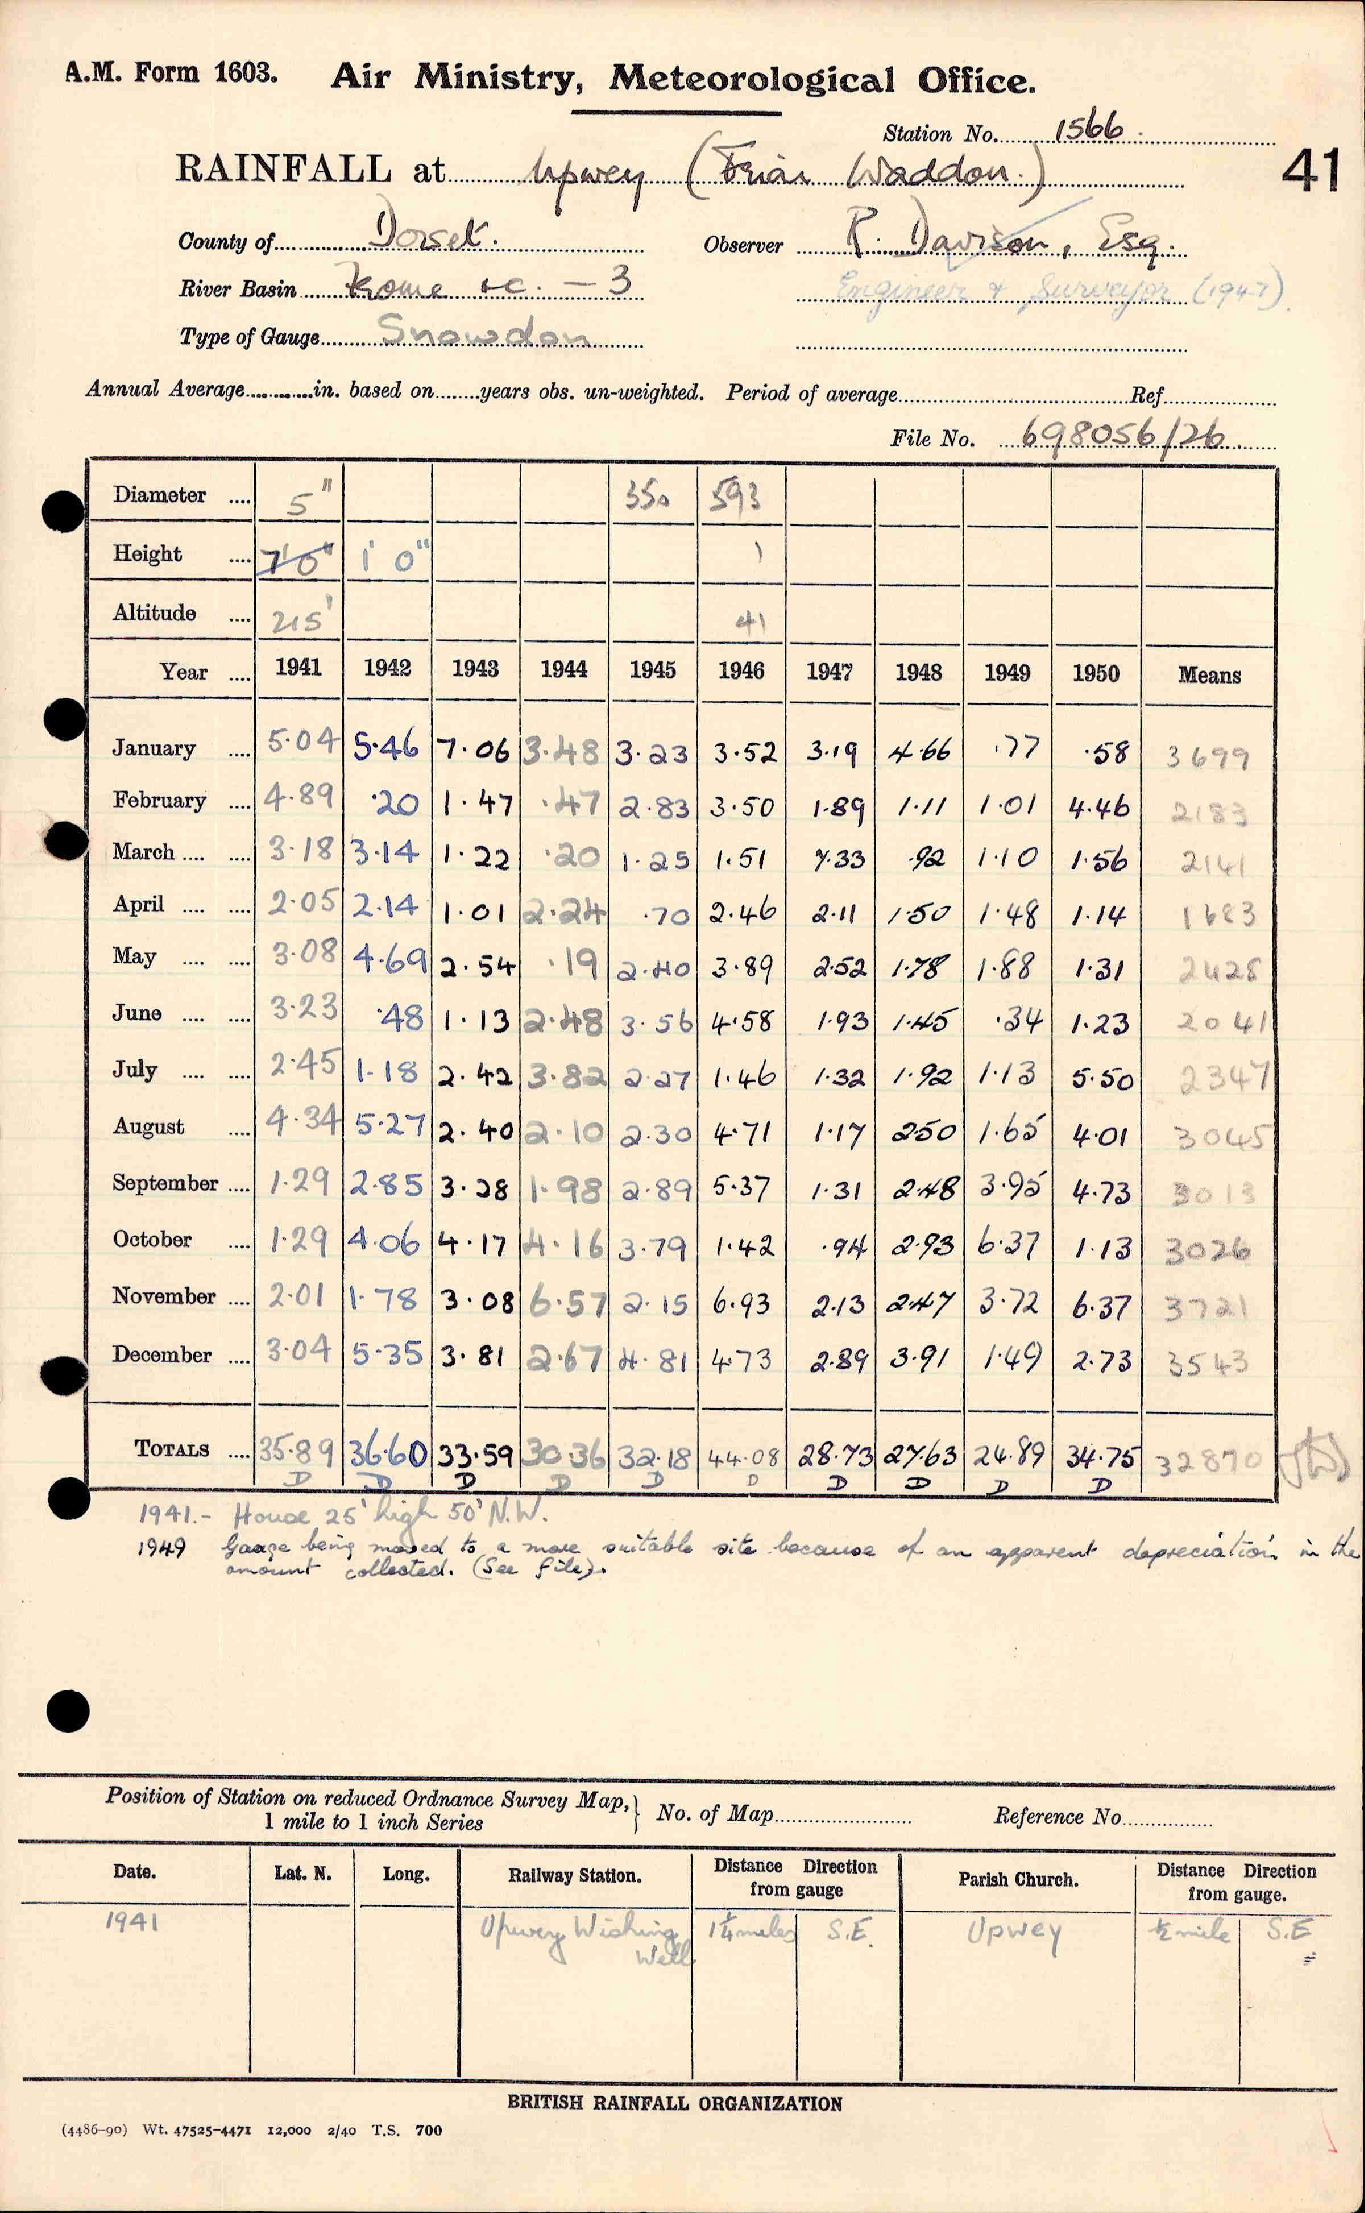 A.M. Form 1603. Air Ministry, Meteorological Office.
Station No. 1566
RAINFALL at Upwey (Friar Waddon.) 41
County of Dorset. Observer R. Davison, Esq.
River Basin Frome &c. — 3 Engineer & Surveyor (1947).
Type of Gauge Snowdon
Annual Average in. based on years obs. un-weighted. Period of average Ref
File No. 698056/26
Diameter 5" 350 593
Height 7'0" 1'0" 1
Altitude 215' 41
Year 1941 1942 1943 1944 1945 1946 1947 1948 1949 1950 Means
January 5.04 5.46 7.06 3.48 3.23 3.52 3.19 4.66 .77 .58 3699
February 4.89 .20 1.47 .47 2.83 3.50 1.89 1.11 1.01 4.46 2183
March 3.18 3.14 1.22 .20 1.25 1.51 7.33 .92 1.10 1.56 2141
April 2.05 2.14 1.01 2.24 .70 2.46 2.11 1.50 1.48 1.14 1683
May 3.08 4.69 2.54 .19 2.40 3.89 2.52 1.78 1.88 1.31 2428
June 3.23 .48 1.13 2.48 3.56 4.58 1.93 1.45 .34 1.23 2041
July 2.45 1.18 2.42 3.82 2.27 1.46 1.32 1.92 1.13 5.50 2347
August 4.34 5.27 2.40 2.10 2.30 4.71 1.17 2.50 1.65 4.01 3045
September 1.29 2.85 3.28 1.98 2.89 5.37 1.31 2.48 3.95 4.73 3013
October 1.29 4.06 4.17 4.16 3.79 1.42 .94 2.93 6.37 1.13 3026
November 2.01 1.78 3.08 6.57 2.15 6.93 2.13 2.47 3.72 6.37 3721
December 3.04 5.35 3.81 2.67 4.81 4.73 2.89 3.91 1.49 2.73 3543
TOTALS 35.89 36.60 33.59 30.36 32.18 44.08 28.73 27.63 24.89 34.75 32870
D D D D D D D D D D
1941.- House 25' high 50' N.W.
1949 Gauge being moved to a more suitable site because of an apparent depreciation in the
amount collected. (See file).
Position of Station on reduced Ordnance Survey Map, 1 mile to 1 inch Series } No. of Map Reference No
Date. Lat. N. Long. Railway Station. Distance Direction from gauge Parish Church. Distance Direction from gauge.
1941 Upwey Wishing Well 1¼ miles S.E. Upwey ½ mile S.E
BRITISH RAINFALL ORGANIZATION
(4486-90) Wt. 47525-4471 12,000 2/40 T.S. 700